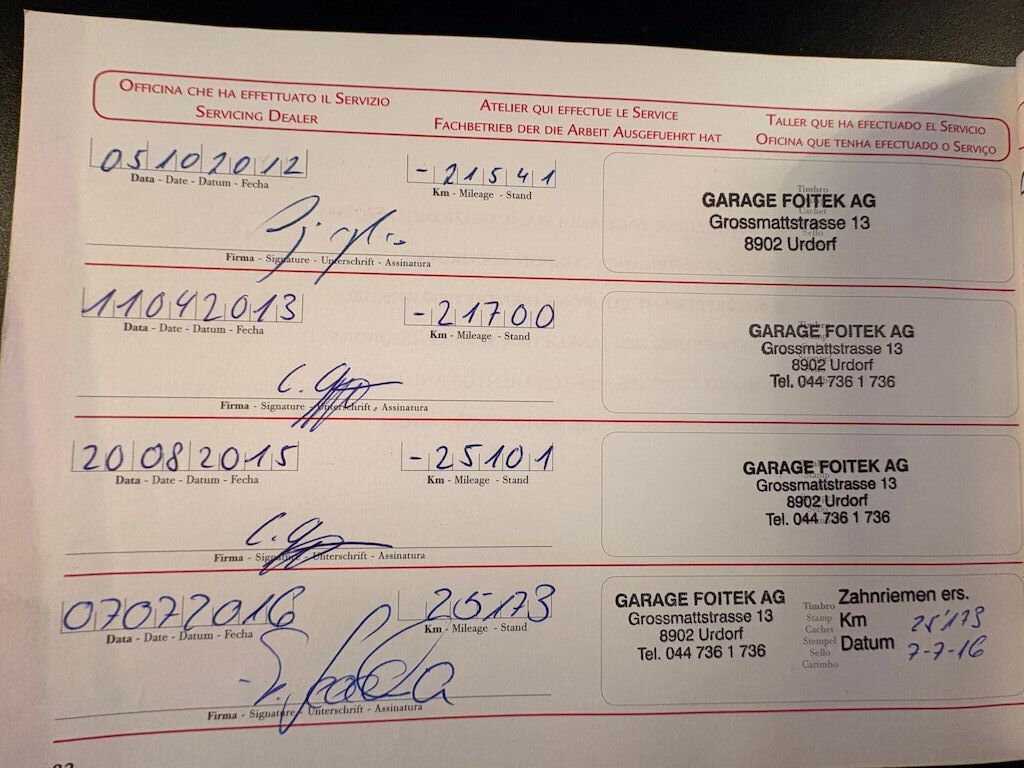 OFFICINA CHE HA EFFETTUATO IL SERVIZIO
SERVICING DEALER
ATELIER QUI EFFECTUE LE SERVICE
FACHBETRIEB DER DIE ARBEIT AUSGEFUEHRT HAT
TALLER QUE HA EFECTUADO EL SERVICIO
OFICINA QUE TENHA EFECTUADO O SERVIÇO
05102012
Data - Date - Datum - Fecha
-21541
Km - Mileage - Stand
Firma - Signature - Unterschrift - Assinatura
Timbro
Cachet
Sello
GARAGE FOITEK AG
Grossmattstrasse 13
8902 Urdorf
11042013
Data - Date - Datum - Fecha
-21700
Km - Mileage - Stand
Firma - Signature - Unterschrift - Assinatura
GARAGE FOITEK AG
Grossmattstrasse 13
8902 Urdorf
Tel. 044 736 1 736
20082015
Data - Date - Datum - Fecha
-25101
Km - Mileage - Stand
Firma - Signature - Unterschrift - Assinatura
GARAGE FOITEK AG
Grossmattstrasse 13
8902 Urdorf
Tel. 044 736 1 736
07072016
Data - Date - Datum - Fecha
25173
Km - Mileage - Stand
Firma - Signature - Unterschrift - Assinatura
GARAGE FOITEK AG
Grossmattstrasse 13
8902 Urdorf
Tel. 044 736 1 736
Timbro
Stamp
Cachet
Stempel
Sello
Carimbo
Zahnriemen ers.
Km 25'173
Datum 7-7-16